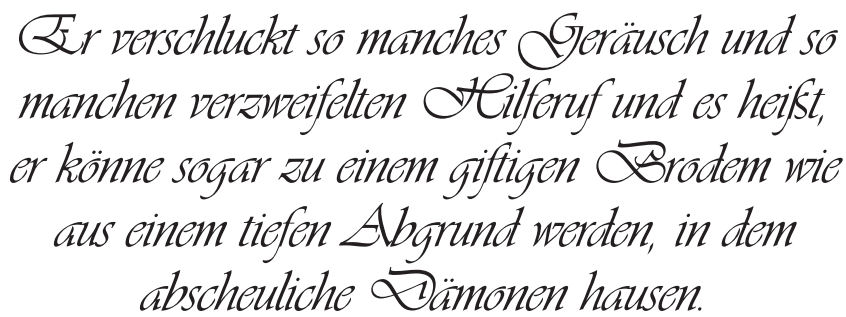 Er verschluckt so manches Geräusch und so
manchen verzweifelten Hilferuf und es heißt,
er könne sogar zu einem giftigen Brodem wie
aus einem tiefen Abgrund werden, in dem
abscheuliche Dämonen hausen.